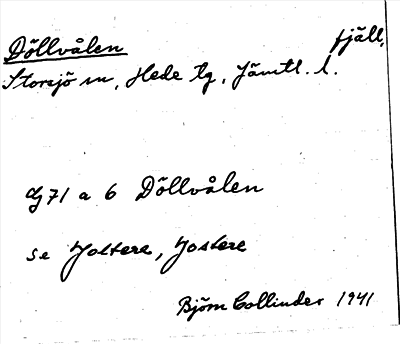 Döllvålen fjäll,
Storsjö sn, Hede tg, Jämtl. l.
Gg 71 a 6 Döllvålen
se Jostere, Jostere
Björn Collinder 1941